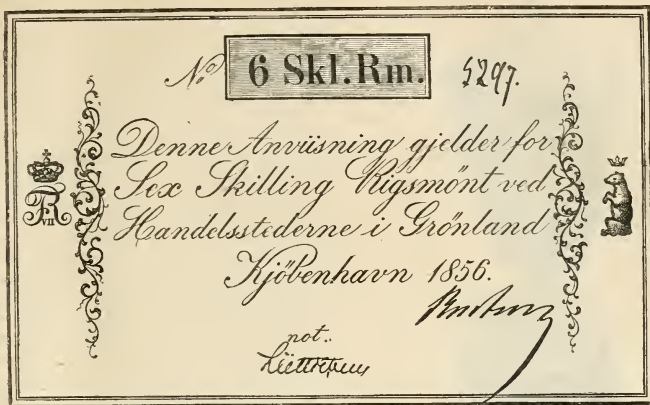 No 6 Skl. Rm. 5297.
Denne Anviisning gjelder for
Sex Skilling Rigsmönt ved
Handelsstederne i Grönland
Kjöbenhavn 1856.
not.:
FR VII